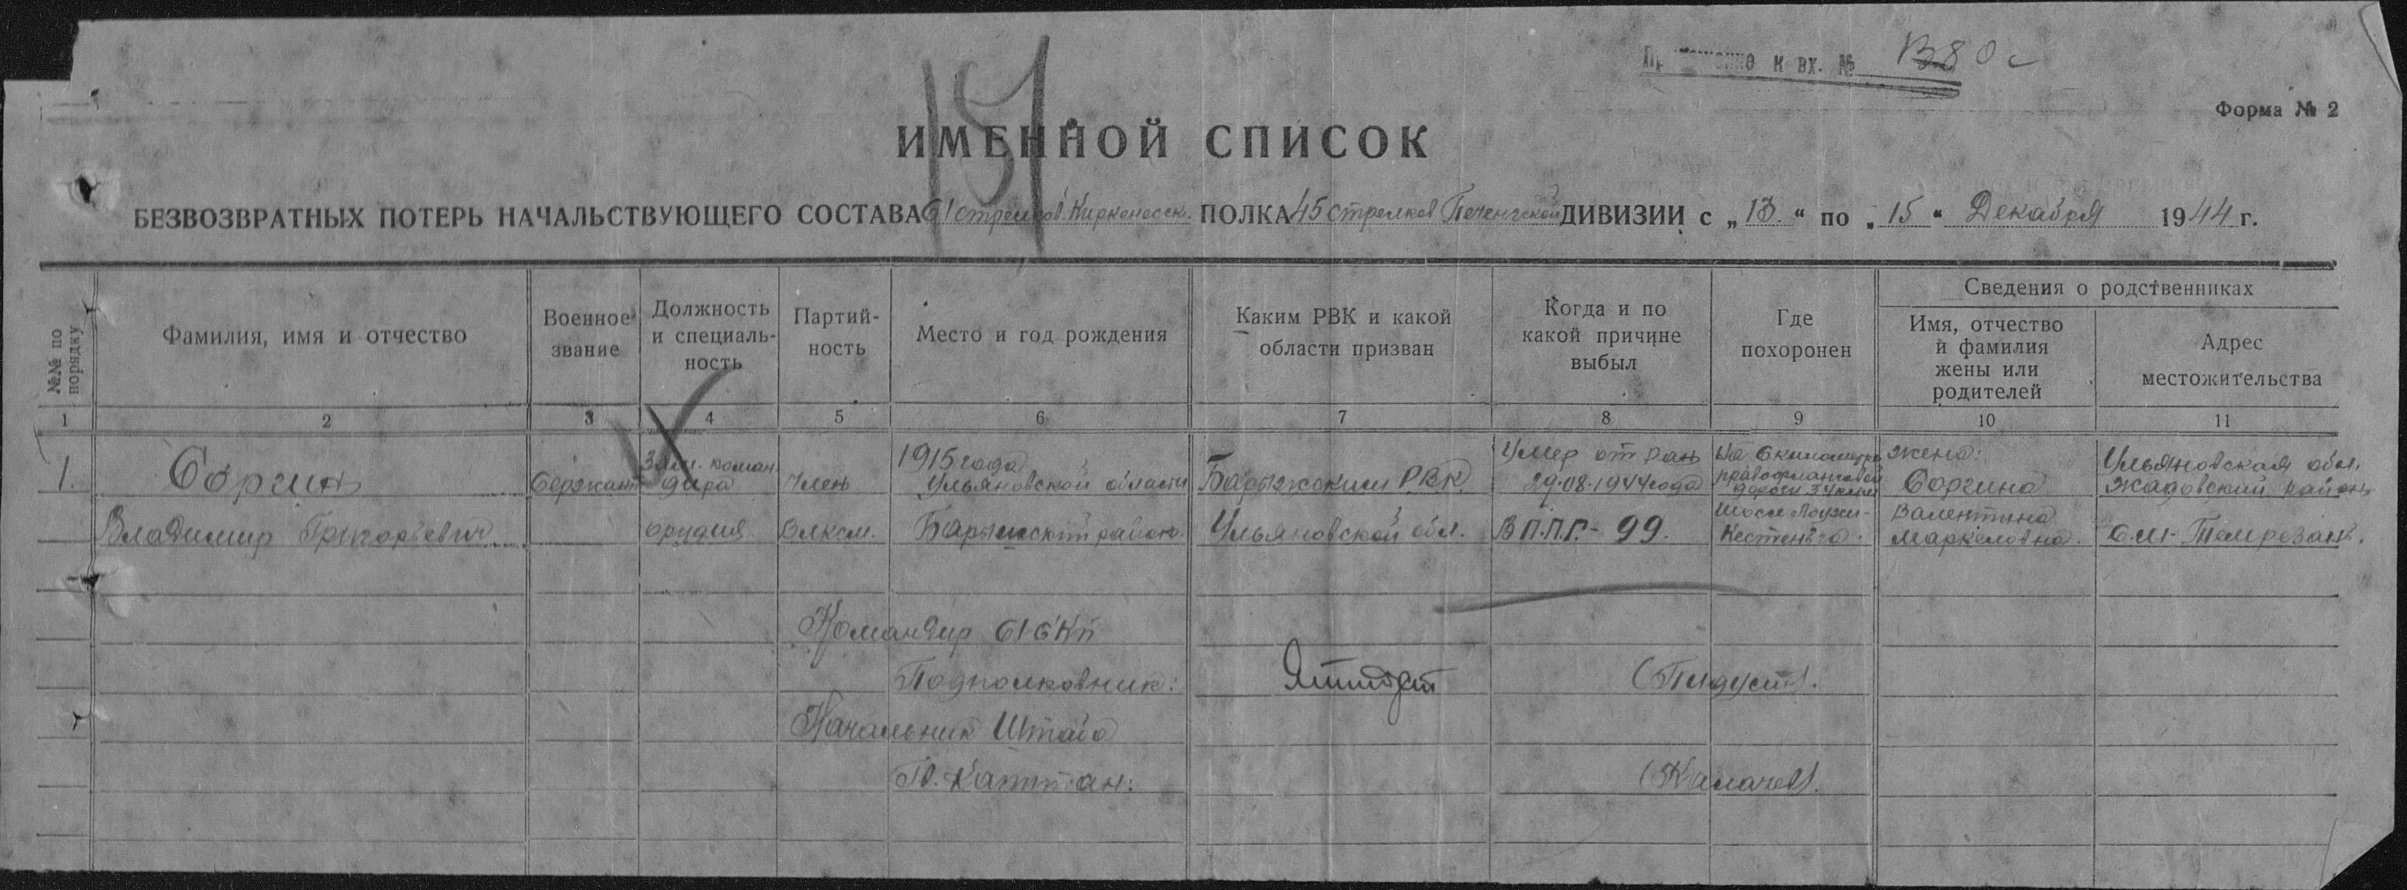 к вх. № 1380с
Форма № 2
151
ИМЕННОЙ СПИСОК
БЕЗВОЗВРАТНЫХ ПОТЕРЬ НАЧАЛЬСТВУЮЩЕГО СОСТАВА 61 стрелков. Киркенесск. ПОЛКА 45 стрелков Печенгской ДИВИЗИИ с „13.“ по „15“ Декабря 1944 г.
№№ по порядку
Фамилия, имя и отчество
Военное звание
Должность и специаль-ность
Партий-ность
Место и год рождения
Каким РВК и какой области призван
Когда и по какой причине выбыл
Где похоронен
Сведения о родственниках
Имя, отчество и фамилия жены или родителей
Адрес местожительства
1 2 3 4 5 6 7 8 9 10 11
1.
Соргин
Владимир Григорьевич
Сержант
Зам. коман-
дира
орудия
Член
Влксм.
1915 года
Ульяновской области
Барышский район.
Барышским РВК
Ульяновской обл.
Умер от ран
29.08.1944 года
В П.П.Г. - 99.
На 6 километре
дороги 34 клм
шоссе Лоухи-
Кестеньга.
жена:
Соргина
Валентина
Маркеловна.
Ульяновская обл.
Жадовский район
Командир 61 СКП
Подполковник: (Пидуст).
Начальник Штаба
Гв. Капитан: (Калачев).